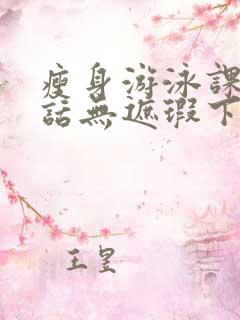 瘦身游泳課
話無遮瑕下
王皇